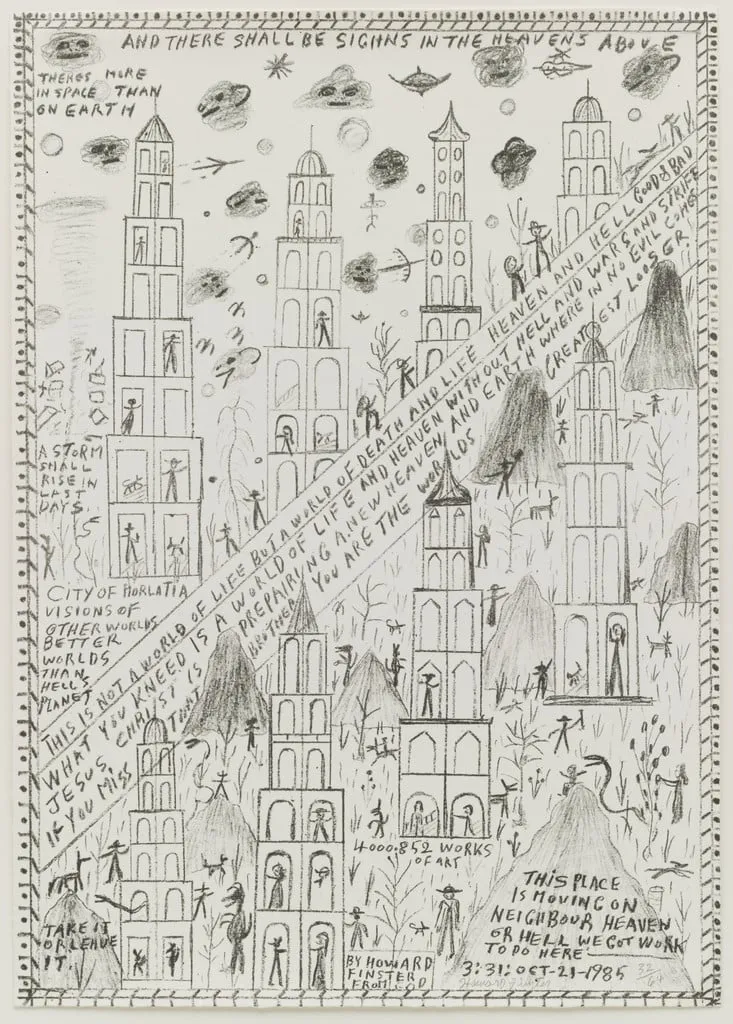 AND THERE SHALL BE SIGHNS IN THE HEAVENS ABOVE
THERES MORE
IN SPACE THAN
ON EARTH
A STORM
SHALL
RISE IN
LAST
DAYS.
CITY OF
VISIONS OF
OTHER WORLDS
BETTER
WORLDS
THAN
HELL'S
PLANET
THIS IS NOT A WORLD OF LIFE BUT A WORLD OF DEATH AND LIFE HEAVEN AND HELL GOOD & BAD
WHAT YOU KNEED IS A WORLD OF LIFE AND HEAVEN WITHOUT HELL AND WARS AND STRIFE
JESUS CHRIST IS PREPAIRING A NEW HEAVEN AND EARTH WHERE IN NO EVIL COMES
IF YOU MISS THAT BROTHER YOU ARE THE WORLDS GREATEST LOOSER.
TAKE IT
OR LEAVE
IT.
4000.852 WORKS
OF ART
BY HOWARD
FINSTER
FROM GOD
THIS PLACE
IS MOVING ON
NEIGHBOUR HEAVEN
OR HELL WE GOT WORK
TO DO HERE
3:31: OCT-21-1985